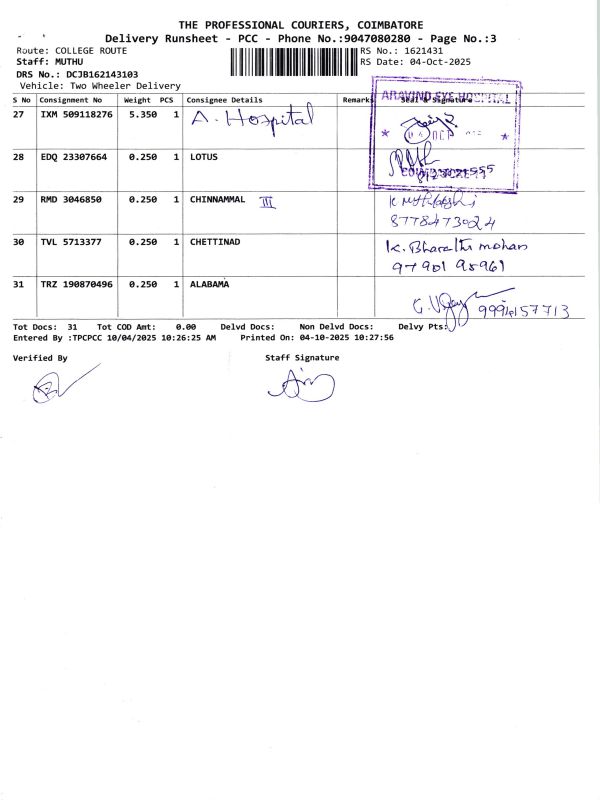 THE PROFESSIONAL COURIERS, COIMBATORE
Delivery Runsheet - PCC - Phone No.:9047080280 - Page No.:3
Route: COLLEGE ROUTE
RS No.: 1621431
Staff: MUTHU
RS Date: 04-Oct-2025
DRS No.: DCJB162143103
Vehicle: Two Wheeler Delivery
S No Consignment No Weight PCS Consignee Details Remarks Seal & Signature
ARAVIND EYE HOSPITAL
27 IXM 509118276 5.350 1 A. Hospital
OCT
28 EDQ 23307664 0.250 1 LOTUS
29 RMD 3046850 0.250 1 CHINNAMMAL III
8778473024
30 TVL 5713377 0.250 1 CHETTINAD K. Bharathi mohan
97901 95961
31 TRZ 190870496 0.250 1 ALABAMA
Tot Docs: 31 Tot COD Amt: 0.00 Delvd Docs: Non Delvd Docs: Delvy Pts:
Entered By :TPCPCC 10/04/2025 10:26:25 AM Printed On: 04-10-2025 10:27:56
Verified By Staff Signature